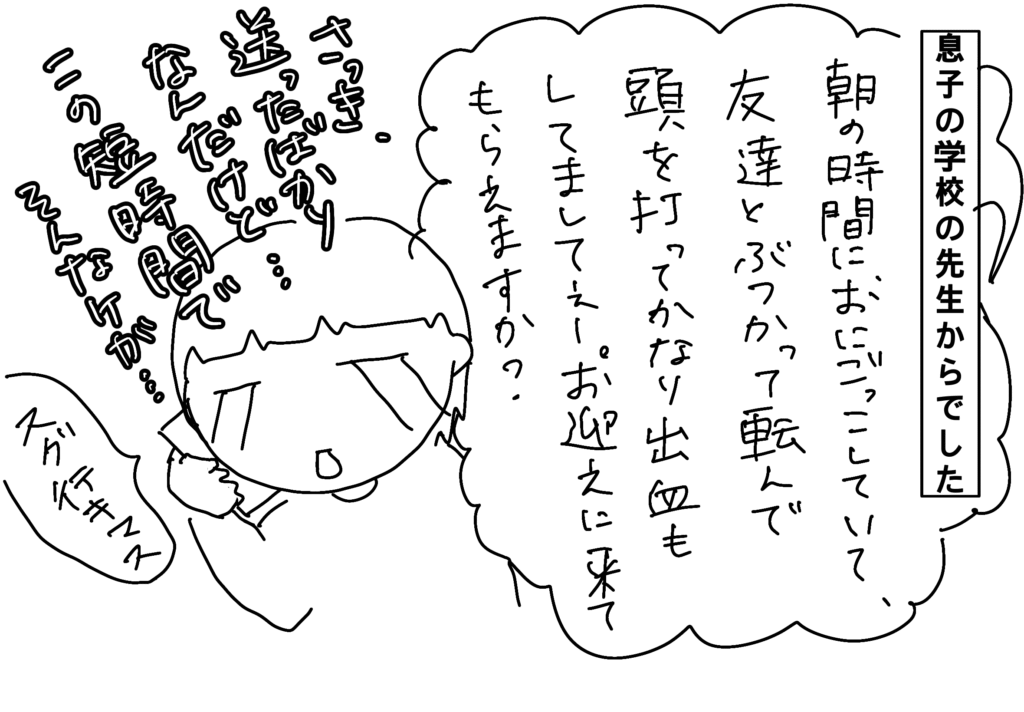 息子の学校の先生からでした
朝の時間におにごっこしていて、
友達とぶつかって転んで
頭を打ってかなり出血も
してましてぇー。お迎えに来て
もらえますか?
さっき、
送ったばかり
なんだけど…
この短時間で
そんなケガ…
スグ
行キマス